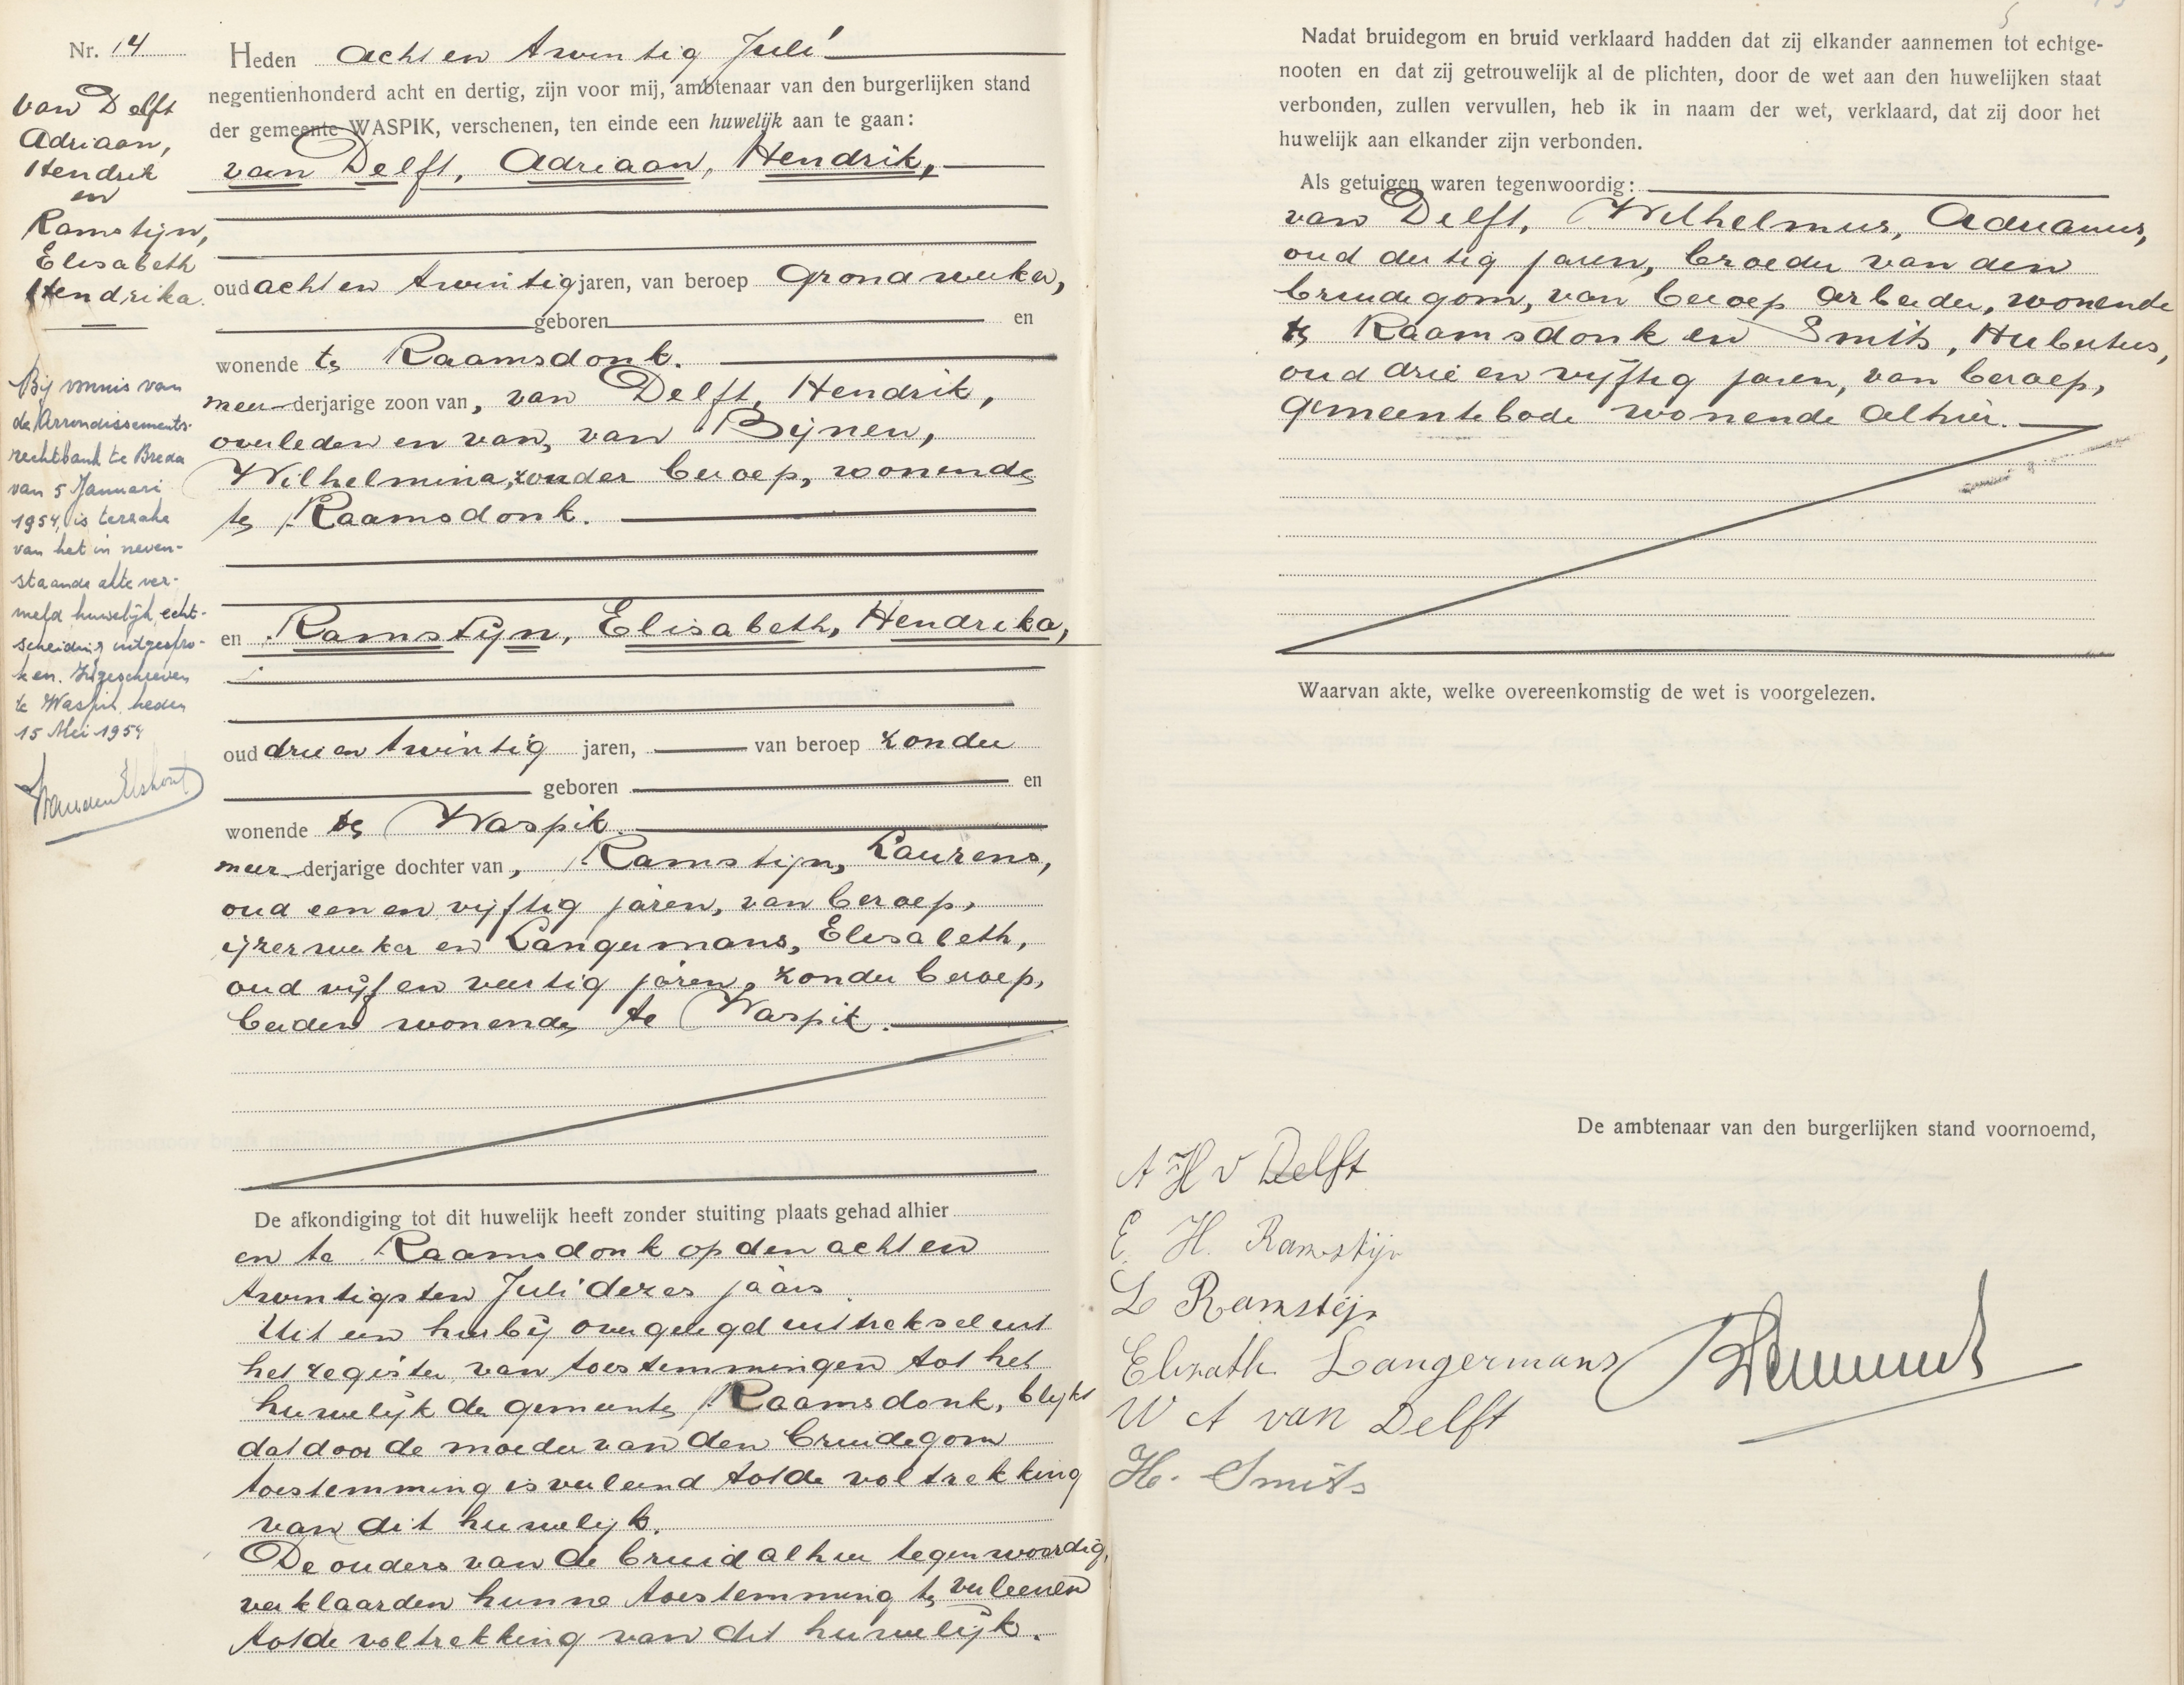 Nr. 14
van Delft
Adriaan,
Hendrik
en
Ramstijn,
Elisabeth
Hendrika.
Bij vonnis van
de Arrondissements-
rechtbank te Breda
van 5 Januari
1954, is terzake
van het in neven-
staande akte ver-
meld huwelijk echt-
scheiding uitgespro-
ken. Ingeschreven
te Waspik heden
15 Mei 1954
Heden acht en twintig Juli
negentienhonderd acht en dertig, zijn voor mij, ambtenaar van den burgerlijken stand
der gemeente WASPIK, verschenen, ten einde een huwelijk aan te gaan:
van Delft, Adriaan, Hendrik,
oud acht en twintig jaren, van beroep Grondwerker,
geboren en
wonende te Raamsdonk.
meer derjarige zoon van, van Delft, Hendrik,
overleden en van, van Bijnen,
Wilhelmina, zonder beroep, wonende
te Raamsdonk.
en Ramstijn, Elisabeth, Hendrika,
oud drie en twintig jaren, van beroep zonder
geboren en
wonende te Waspik.
meer derjarige dochter van, Ramstijn, Laurens,
oud een en vijftig jaren, van beroep,
ijzerwerker en Langermans, Elisabeth,
oud vijf en veertig jaren, zonder beroep,
beiden wonende te Waspik.
De afkondiging tot dit huwelijk heeft zonder stuiting plaats gehad alhier
en te Raamsdonk op den acht en
twintigsten Juli dezes jaars
Uit een hierbij overgelegd uittreksel uit
het register van toestemmingen tot het
huwelijk der gemeente Raamsdonk, blijkt
dat door de moeder van den bruidegom
toestemming is verleend tot de voltrekking
van dit huwelijk.
De ouders van de bruid alhier tegenwoordig,
verklaarden hunne toestemming te verleenen
tot de voltrekking van dit huwelijk.
Nadat bruidegom en bruid verklaard hadden dat zij elkander aannemen tot echtge-
nooten en dat zij getrouwelijk al de plichten, door de wet aan den huwelijken staat
verbonden, zullen vervullen, heb ik in naam der wet, verklaard, dat zij door het
huwelijk aan elkander zijn verbonden.
Als getuigen waren tegenwoordig:
van Delft, Wilhelmus, Adrianus,
oud dertig jaren, broeder van den
bruidegom, van beroep arbeider, wonende
te Raamsdonk en Smits, Hubertus,
oud drie en vijftig jaren, van beroep,
gemeentebode wonende alhier.
Waarvan akte, welke overeenkomstig de wet is voorgelezen.
De ambtenaar van den burgerlijken stand voornoemd,
A H v Delft
E. H. Ramstijn
L Ramstijn
Elisabeth Langermans
W A van Delft
H. Smits